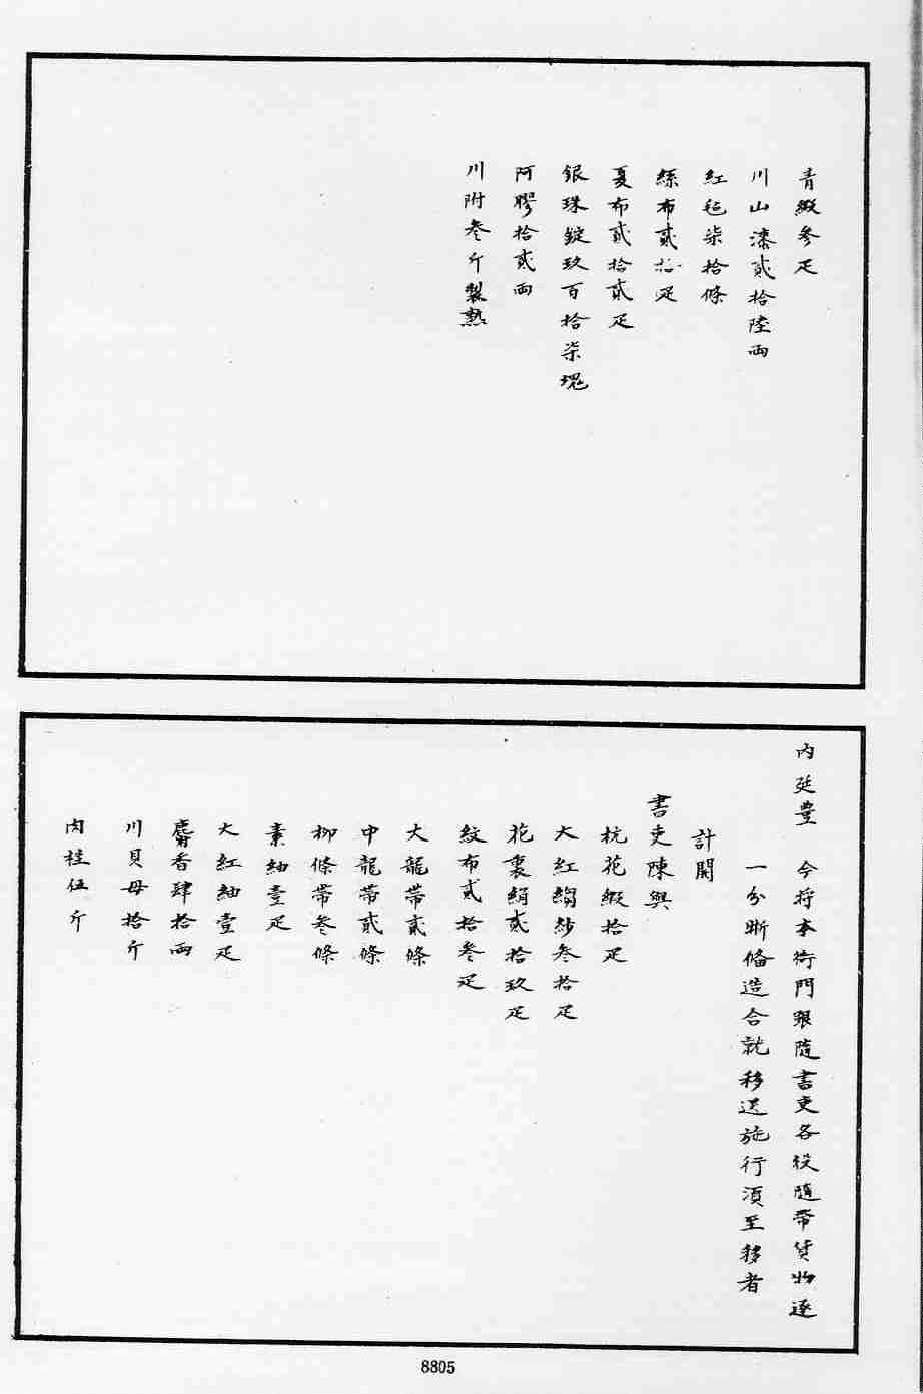 青緞參疋
川山漆貳拾陸兩
紅毡柒拾條
絲布貳拾疋
夏布貳拾貳疋
銀珠錠玖百拾柒塊
阿膠拾貳兩
川附叁斤製熟
內廷豐　今將本衙門跟隨書吏各役隨帶貨物逐
一分晰條造合就移送施行須至移者
計開
書吏陳興
杭花緞拾疋
大紅縐紗叁拾疋
花裏絹貳拾玖疋
紋布貳拾叁疋
大龍帶貳條
中龍帶貳條
柳條帶叁條
素紬壹疋
大紅紬壹疋
麝香肆拾兩
川貝母拾斤
肉桂伍斤
8805